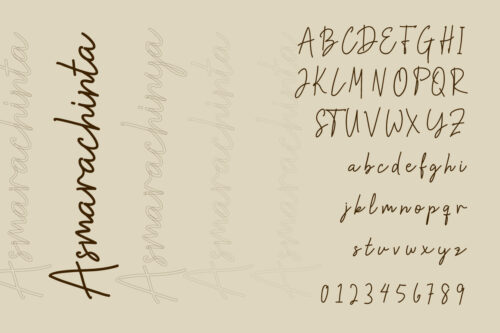 Asmarachinta
Asmarachinta
Asmarachinya
Asmarachinta
ABCDEFGHI
JKLMNOPQR
STUVWXYZ
a b c d e f g h i
j k l m n o p q r
s t u v w x y z
0 1 2 3 4 5 6 7 8 9